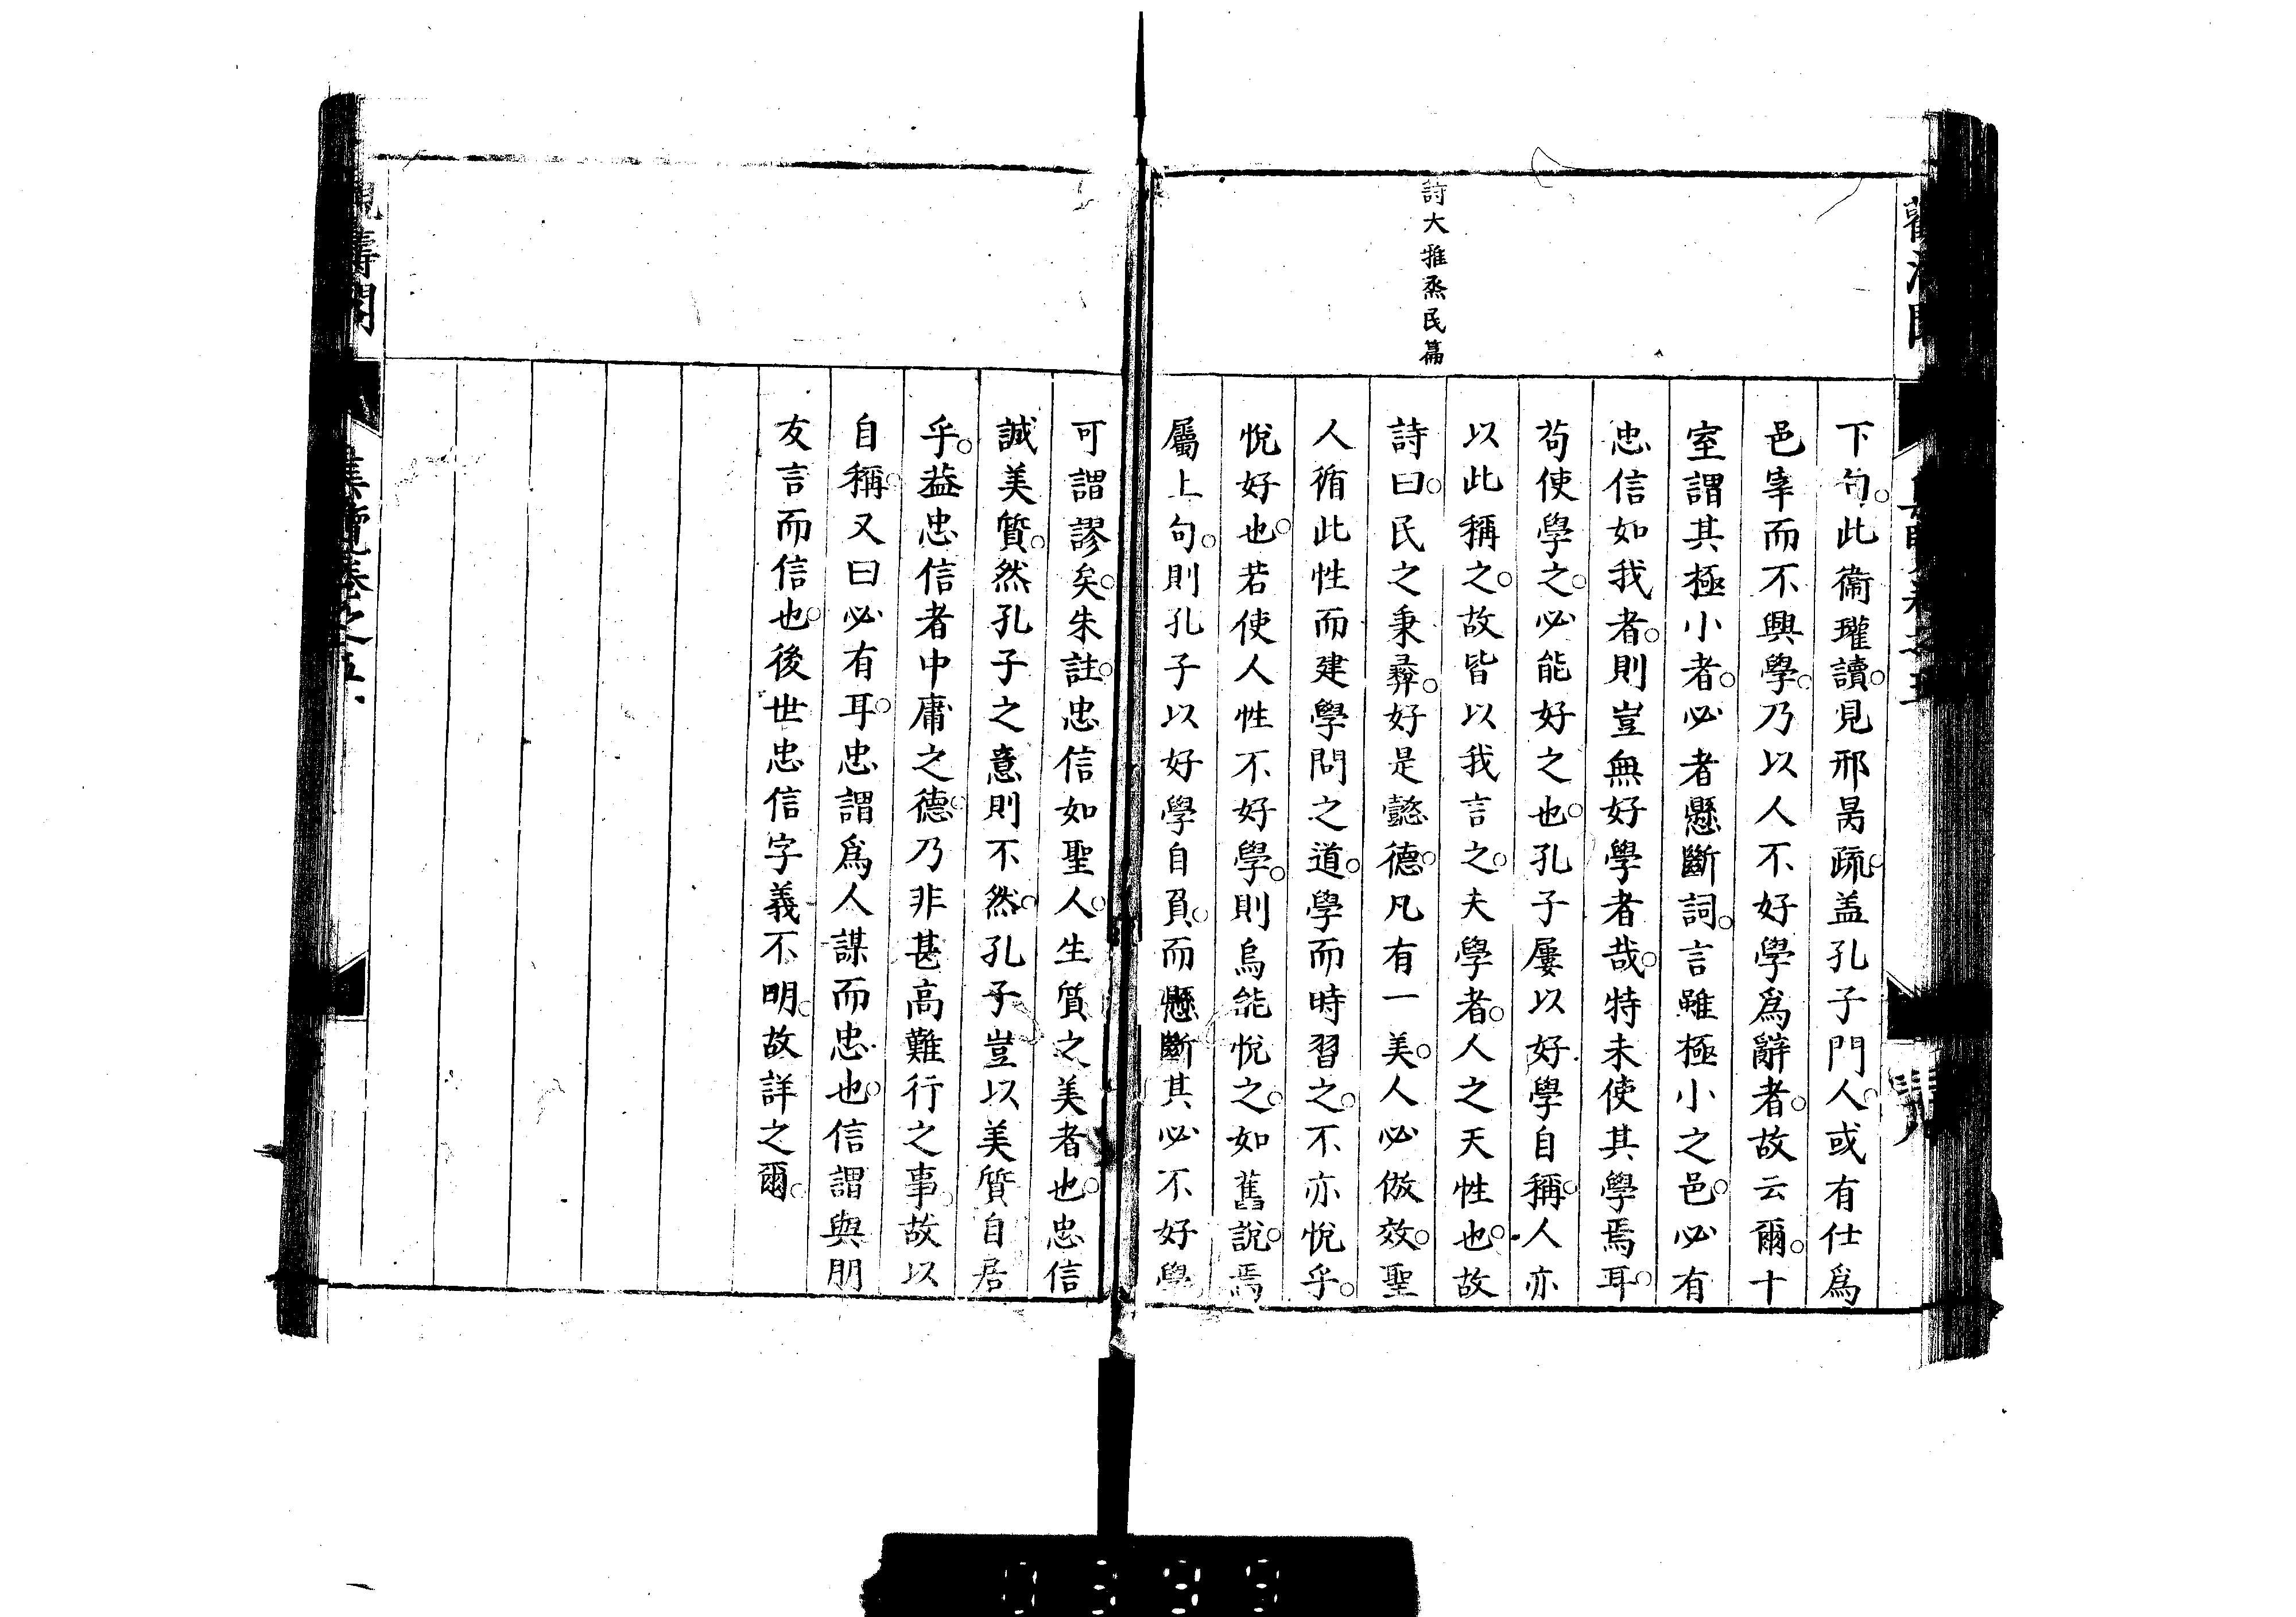 詩大雅烝民篇
下句。此衞瓘讀。見邢昺疏。盖孔子門人。或有仕爲
邑宰而不興學。乃以人不好學爲辭者。故云爾。十
室謂其極小者。必者懸斷詞。言雖極小之邑。必有
忠信如我者。則豈無好學者哉。特未使其學焉耳。
苟使學之。必能好之也。孔子屢以好學自稱。人亦
以此稱之。故皆以我言之。夫學者。人之天性也。故
詩曰。民之秉彛。好是懿德。凡有一美。人必倣效。聖
人循此性而建學問之道。學而時習之。不亦悅乎。
悅好也。若使人性不好學。則烏能悅之。如舊說。焉
屬上句。則孔子以好學自負。而懸斷其必不好學
可謂謬矣。朱註。忠信如聖人。生質之美者也。忠信
誠美質。然孔子之意則不然。孔子豈以美質自居
乎。葢忠信者中庸之德。乃非甚高難行之事。故以
自稱。又曰必有耳。忠謂爲人謀而忠也。信謂與朋
友言而信也。後世忠信字義不明。故詳之爾。
集覽卷之五